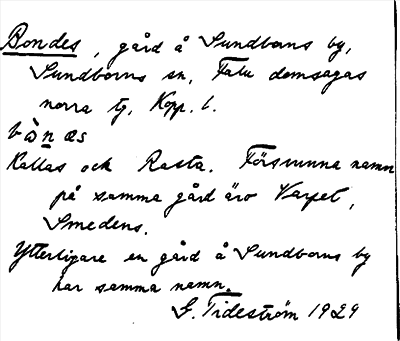 Bondes, gård å Sundborns by,
Sundborns sn, Falu domsagas
norra tg, Kopp. l.
bò̀nas
Kallas och Rasta. Försvunna namn
på samma gård äro Varpet,
Smedens.
Ytterligare en gård å Sundborns by
har samma namn.
G. Tideström 1929